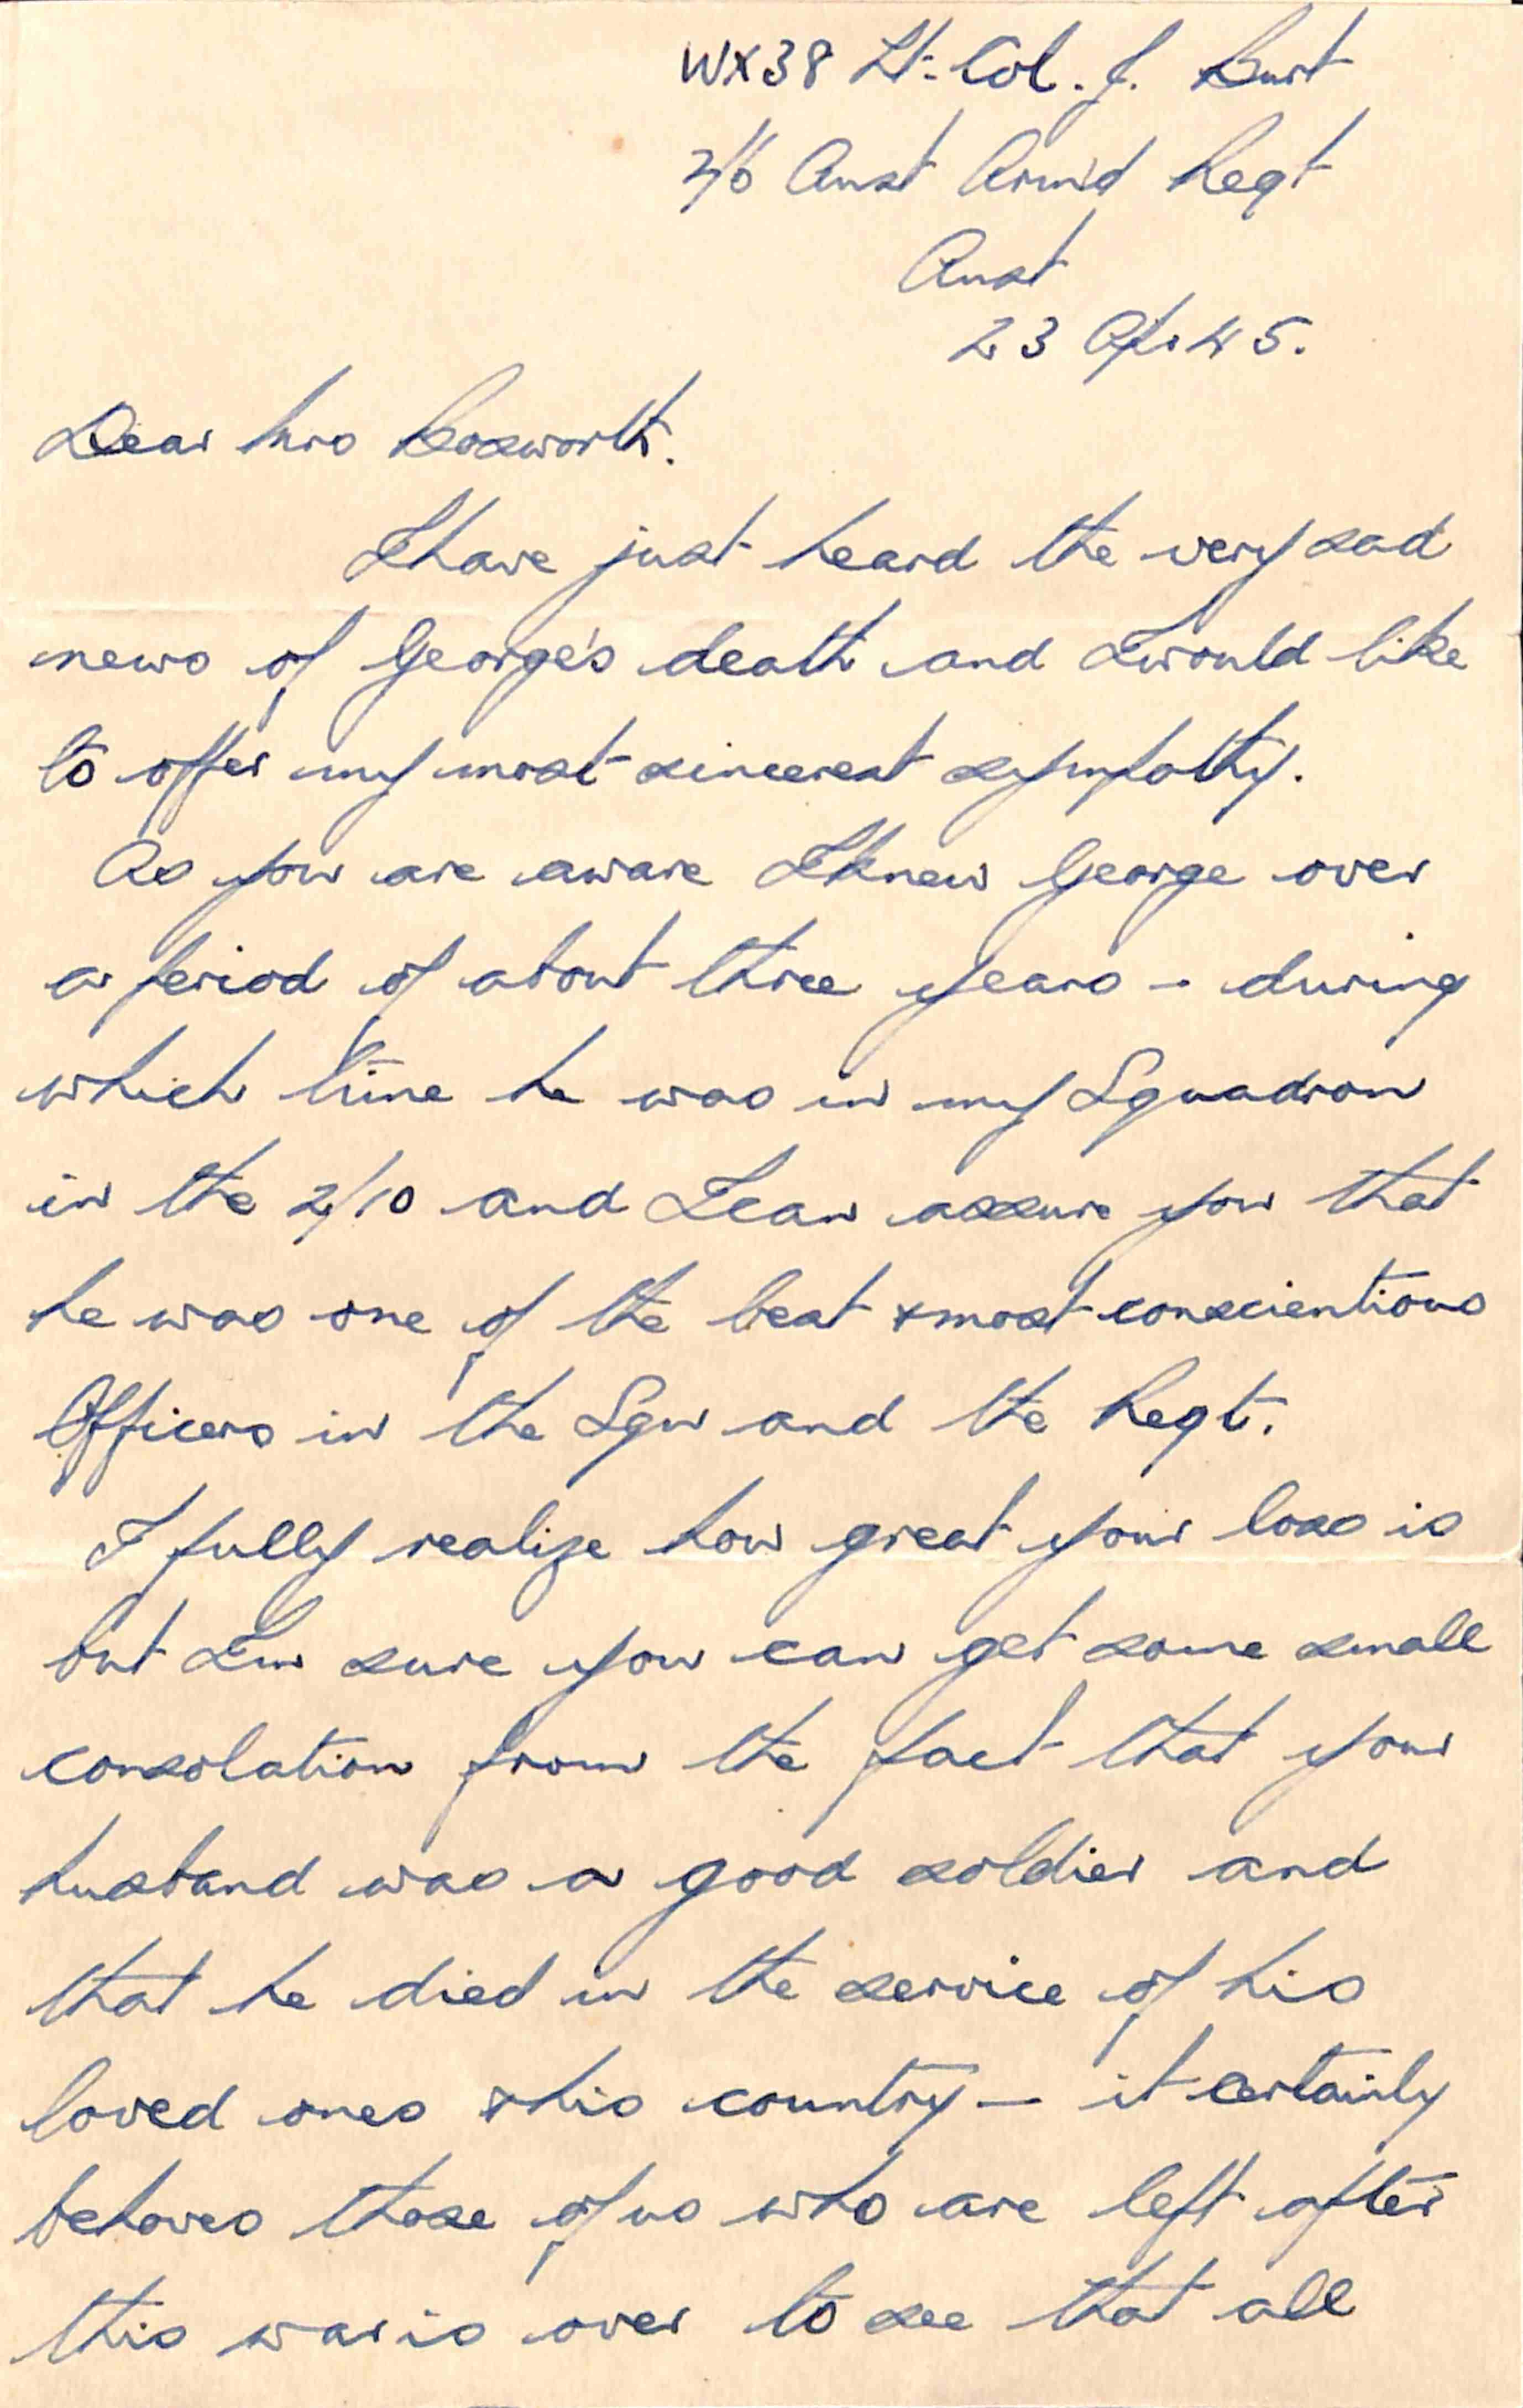 WX38 Lt-Col. J. Burt
2/6 Aust Arm'd Regt
Aust
23 Apr 45.
Dear Mrs Bosworth.
I have just heard the very sad
news of George's death and I would like
to offer my most sincerest sympathy.
As you are aware I knew George over
a period of about three years - during
which time he was in my Squadron
in the 2/10 and I can assure you that
he was one of the best & most conscientious
Officers in the Sqn and the Regt.
I fully realize how great your loss is
but I'm sure you can get some small
consolation from the fact that your
husband was a good soldier and
that he died in the service of his
loved ones & his country - it certainly
behoves those of us who are left after
this war is over to see that all